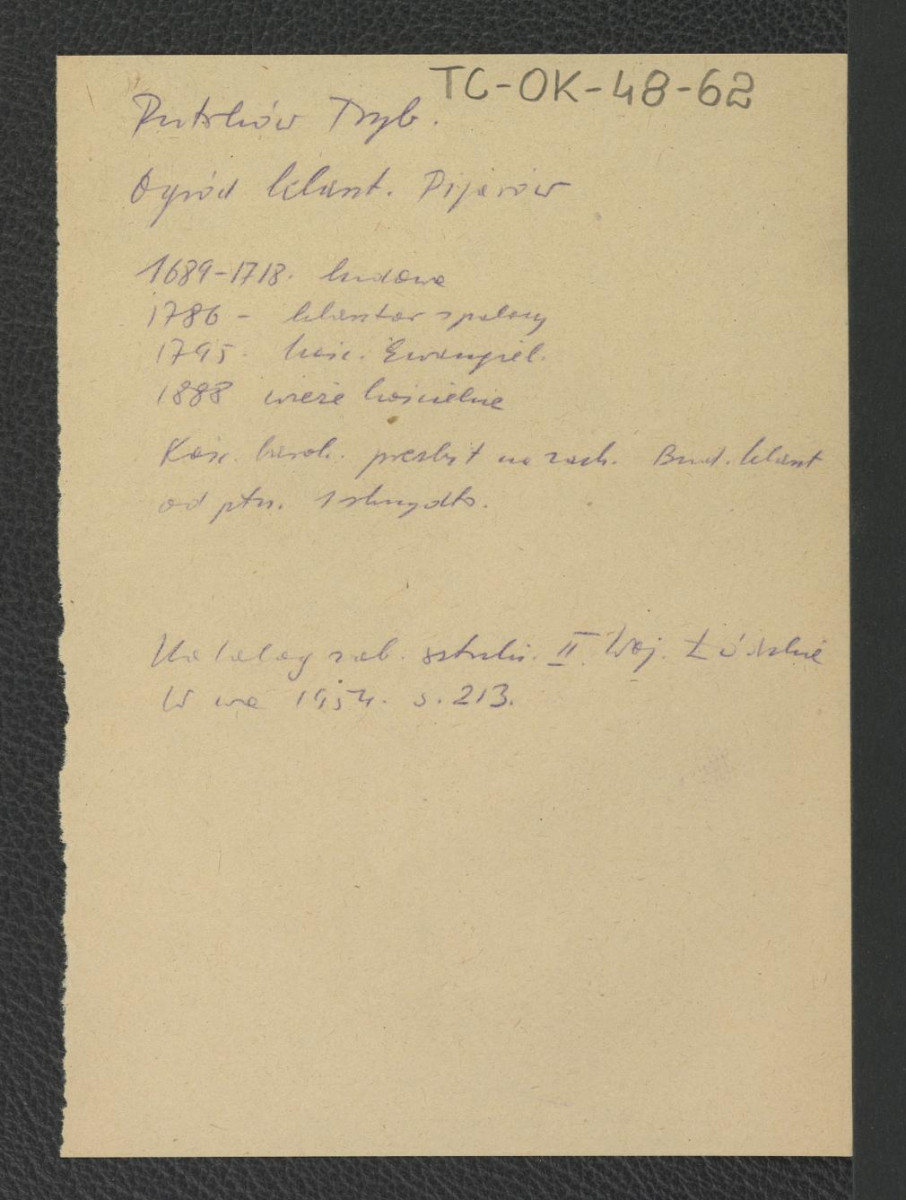 TC-OK-48-62
Piotrków Tryb.
Ogród klaszt. Pijarów
1689-1718. budowa
1786 - klasztor spalony
1795. kośc. Ewangiel.
1888 wieże kościelne
Kośc. barok. prezbyt na zach. Bud. klaszt
od płn. 1 skrzydło.
Katalog zab. sztuki. II. Woj. Łódzkie
W wa 1954. s. 213.